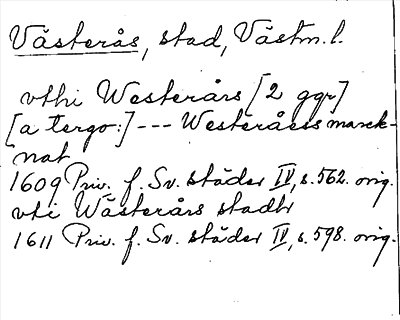 Västerås, stad, Västm. l.
vthi Westerårs [2 ggr]
[a tergo:] --- Westeråess marck-
nat
1609 Priv. f. Sv. städer IV, s. 562. orig.
vti Wästerårs stadh
1611 Priv. f. Sv. städer IV, s. 598. orig.